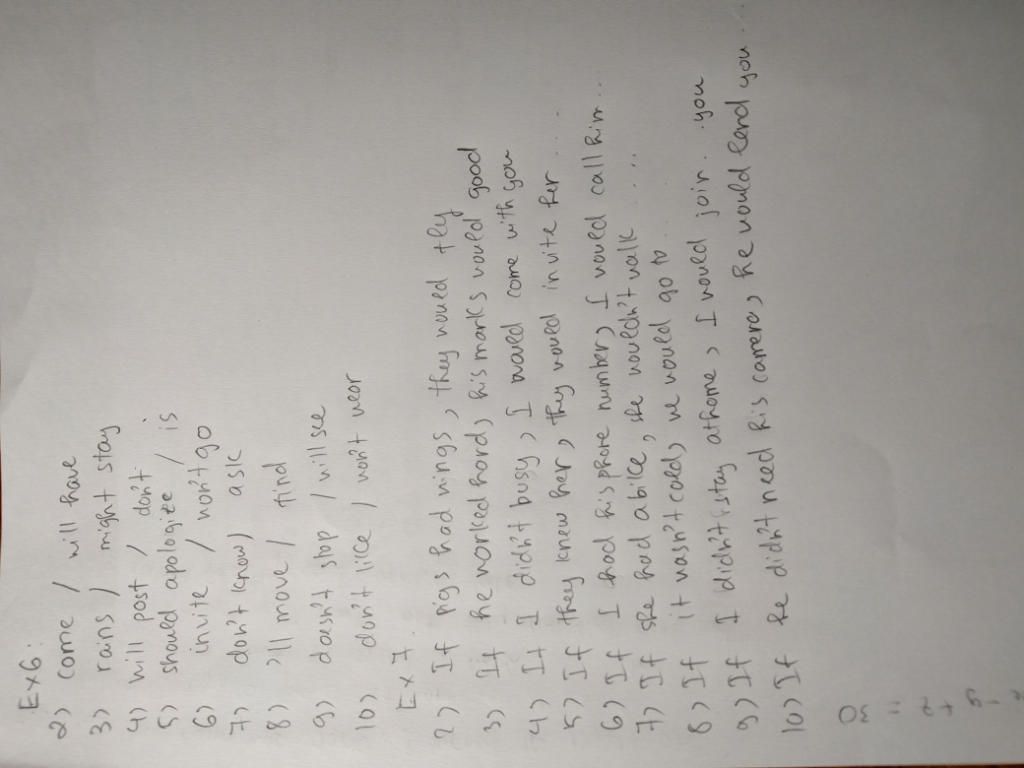 Ex6:
2) come / will have
3) rains / might stay
4) will post / don't
5) should apologize / is
6) invite / won't go
7) don't know) ask
8) 'll move / find
9) doesn't stop / will see
10) don't like / won't wear
Ex 7.
2) If pigs had wings, they would fly
3) If he worked hard, his marks would good
4) If I didn't busy, I would come with you
5) If they knew her, they would invite her ....
6) If I had his phone number, I would call him...
7) If she had a bike, she wouldn't walk ....
8) If it wasn't cold, we would go to ...
9) If I didn't stay at home, I would join... you
10) If he didn't need his camera, he would lend you ...